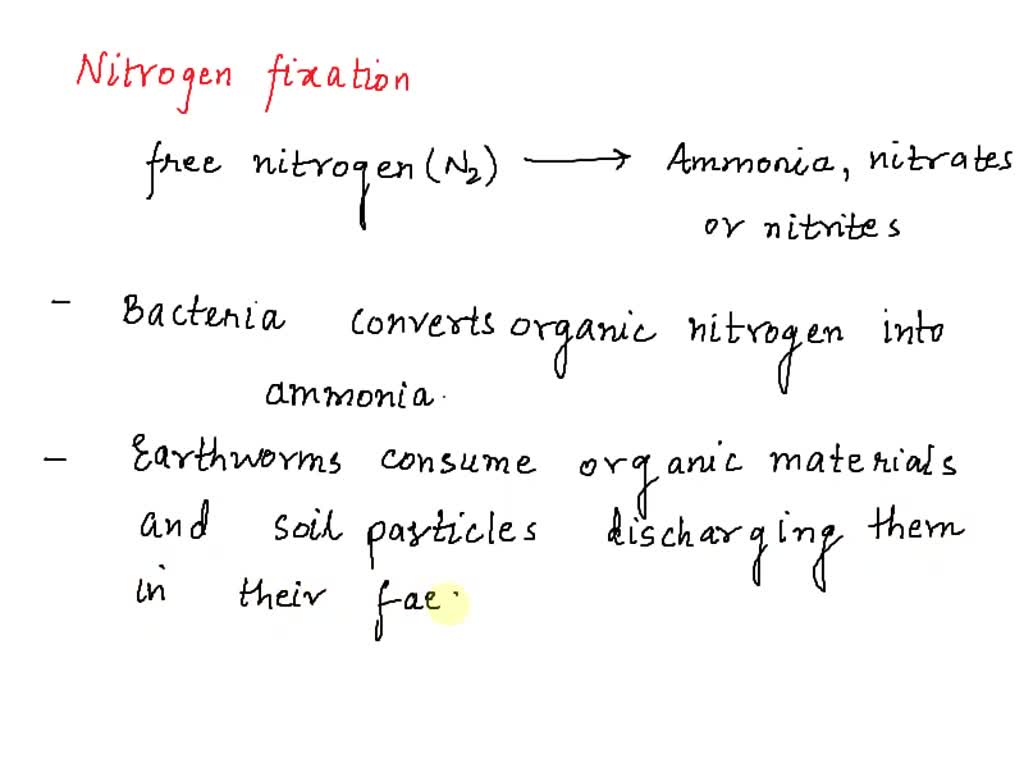 Nitrogen fixation
free nitrogen (N₂) → Ammonia, nitrates
or nitrites
- Bacteria converts organic nitrogen into
ammonia.
- Earthworms consume organic materials
and soil particles discharging them
in their fae